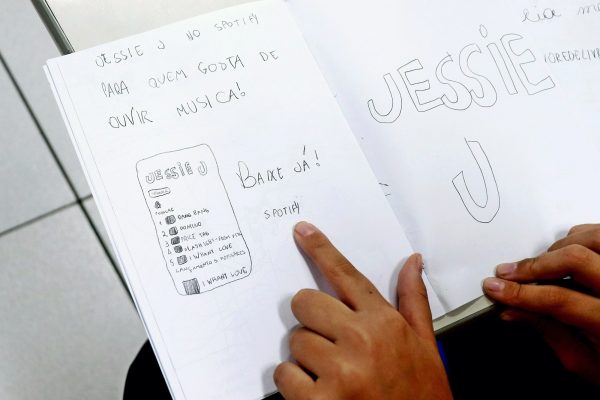 JESSIE J NO SPOTIFY
PARA QUEM GOSTA DE
OUVIR MUSICA!
JESSIE J
POPULARE
1 BANG BANG
2 DOMINO
3 PRICE TAG
4 FLASHLIGHT-FROM
5 I WHANT LOVE
LANÇAMENTOS
I WHANT LOVE
BAIXE JÁ!
SPOTIFY
JESSIE
J